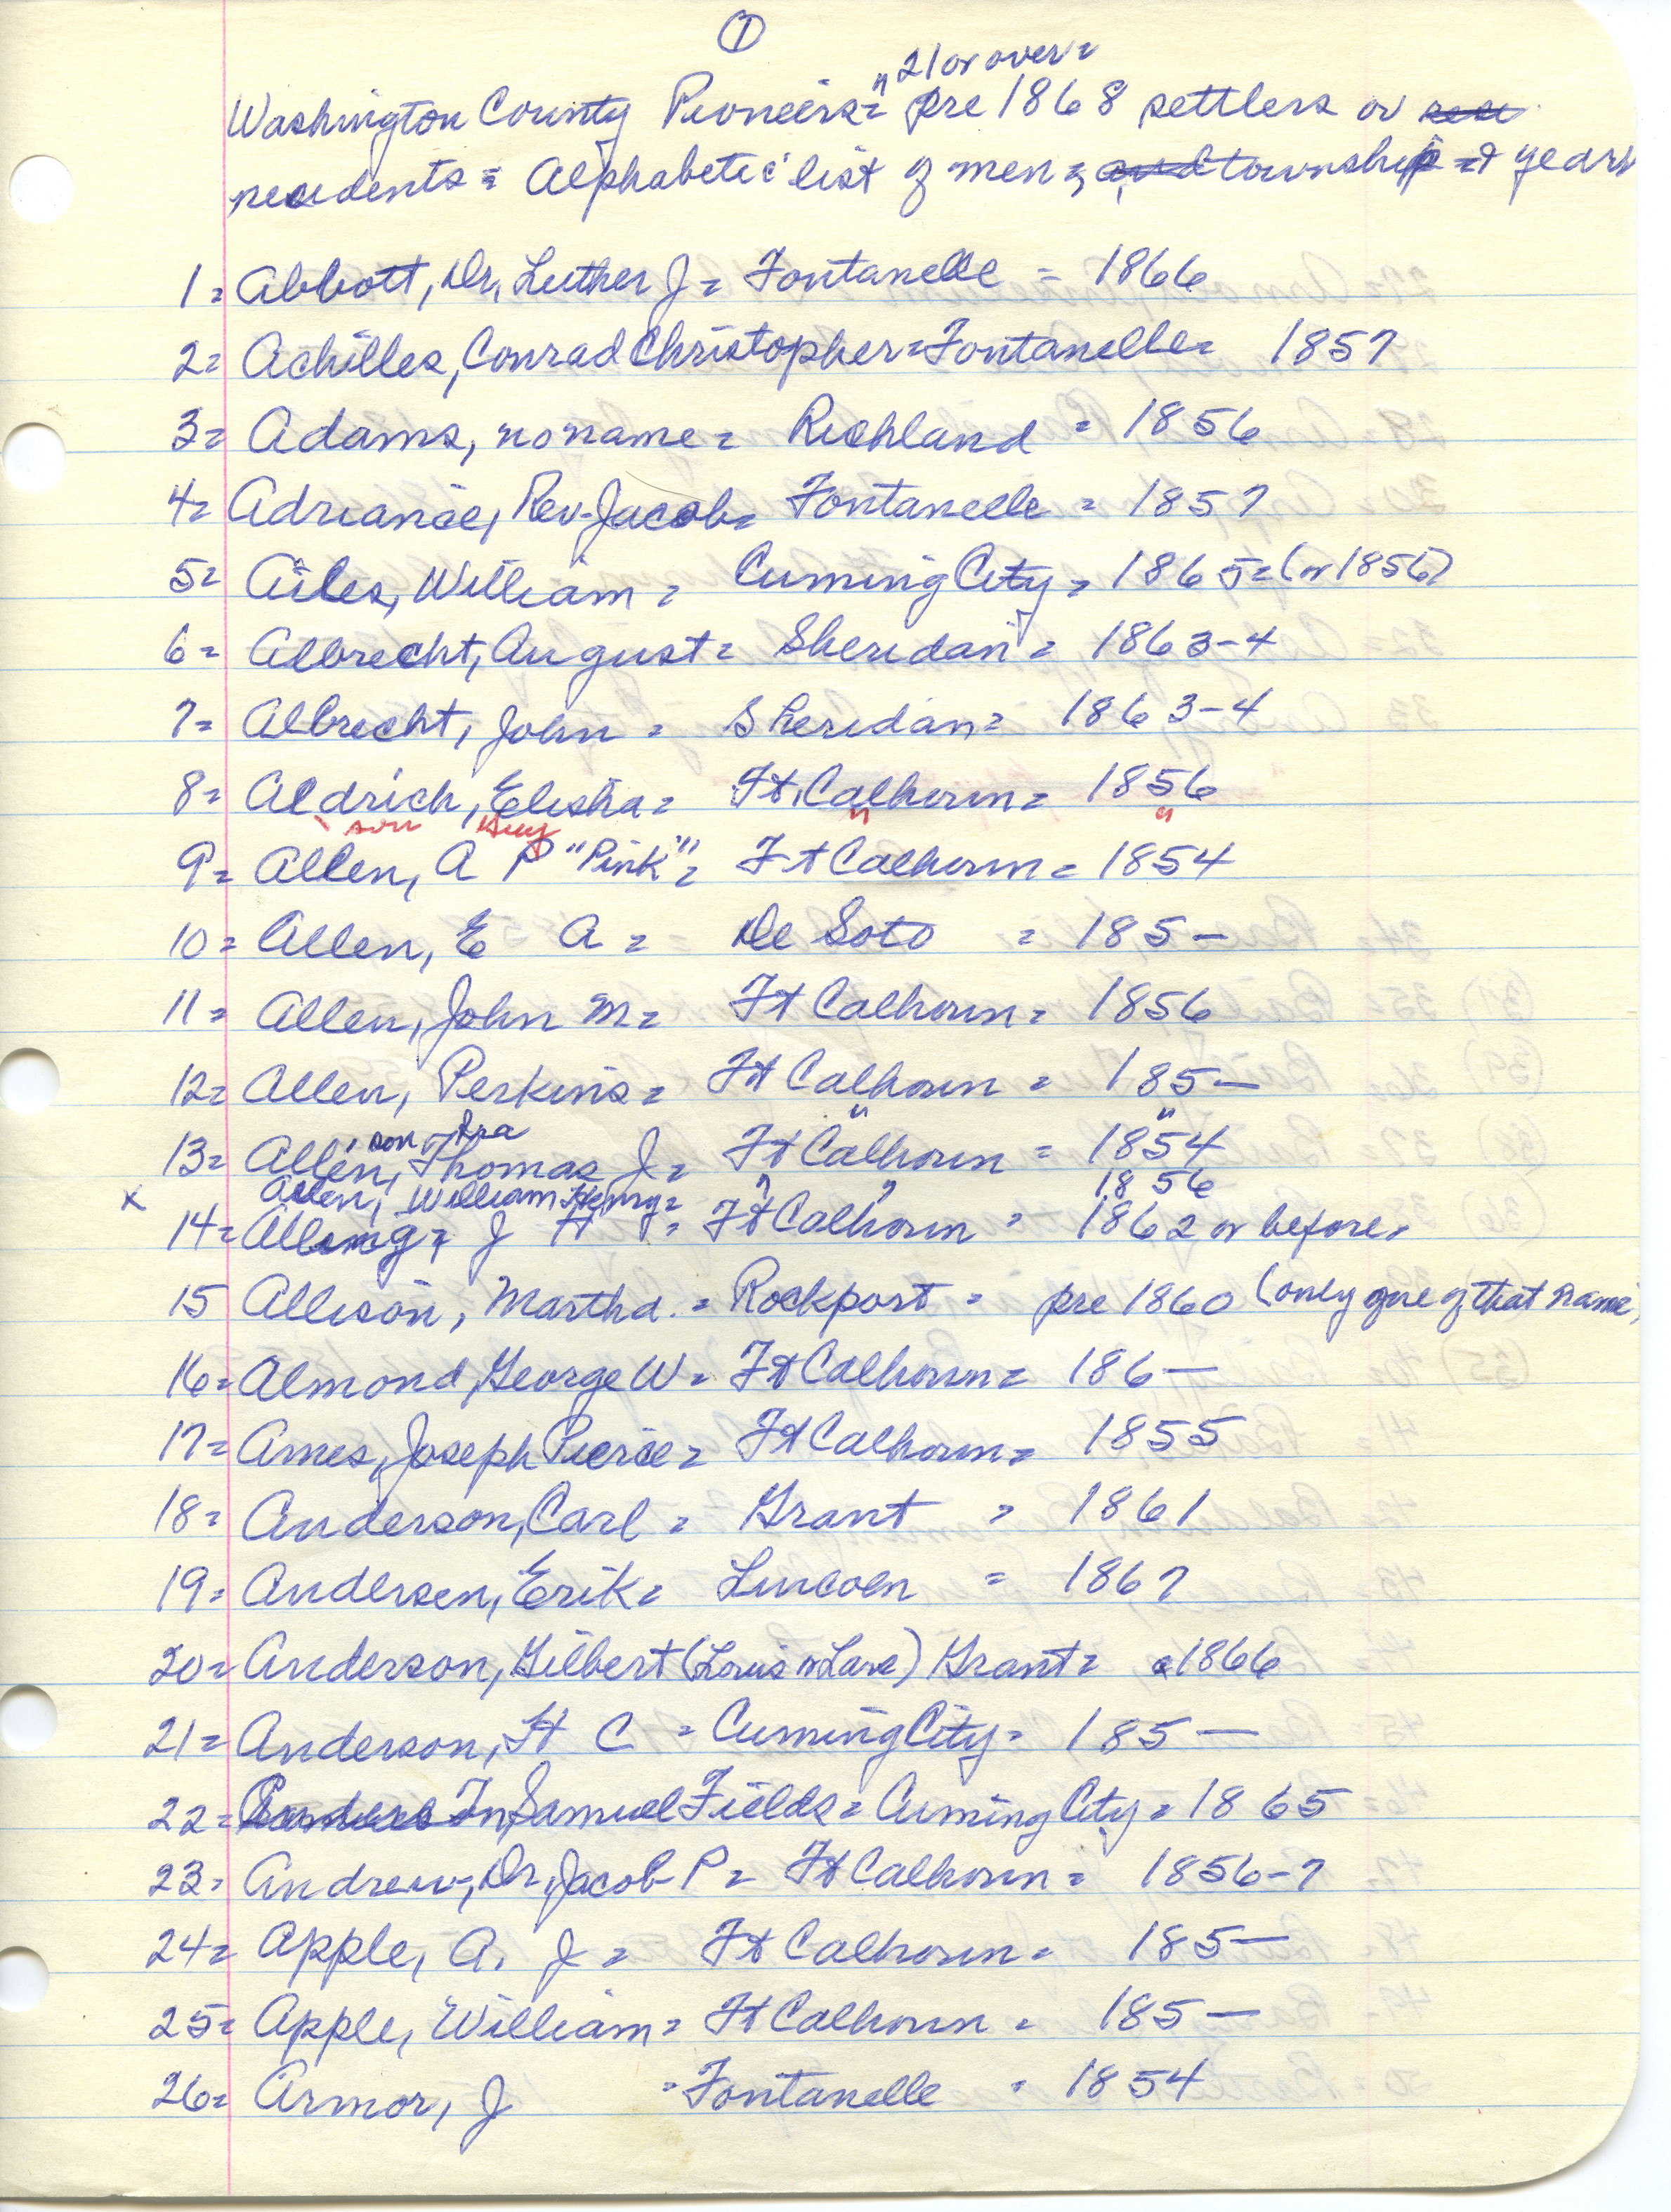 1
" 21 or over=
Washington County Pioneers= pre 1868 settlers or
residents = Alphabetic list of men =, and township = & years
1= Abbott, Dr, Luther J = Fontanelle = 1866
2= Achilles, Conrad Christopher = Fontanelle= 1857
3= Adams, no name = Richland = 1856
4= Adriance, Rev-Jacob= Fontanelle = 1857
5= Ailes, William = Cuming City = 1865=(or 1856)
6= Albrecht, August = Sheridan = 1863-4
7= Albrecht, John = Sheridan= 1863-4
8= Aldrich, Elisha= Ft. Calhoun= 1856
" son Guy " "
9= Allen, A P "Pink"= Ft Calhoun = 1854
10= Allen, E A = De Soto = 185-
11= Allen, John M= Ft Calhoun= 1856
12= Allen, Perkins= Ft Calhoun = 185-
" son Ira " "
13= Allen, Thomas J= Ft Calhoun = 1854
x Allen, William Henry= " " 1856
14= Alling= J H = Ft Calhoun = 1862 or before=
15 Allison, Martha. = Rockport = pre 1860 (only one of that name)
16= Almond, George W = Ft Calhoun= 186-
17= Ames, Joseph Pierce= Ft Calhoun= 1855
18= Anderson, Carl = Grant = 1861
19= Andersen, Erik= Lincoln = 1867
20= Anderson, Gilbert (Louis or Lars) Grant= c1866
21= Anderson, H C = Cuming City= 185-
22= Samuel Fields= Cuming City= 1865
23= Andrew, Dr, Jacob P= Ft Calhoun= 1856-7
24= Apple, A. J = Ft Calhoun= 185-
25= Apple, William= Ft Calhoun = 185-
26= Armor, J =Fontanelle = 1854